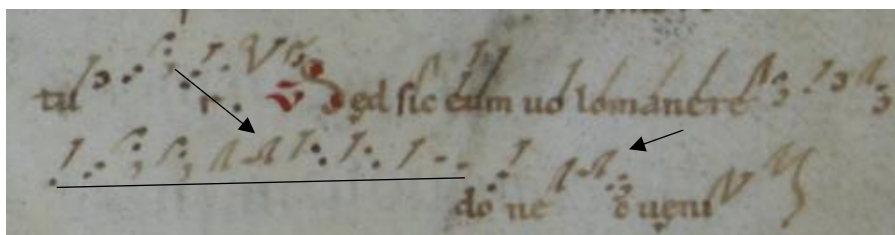 tu r. v̄ Sed sic eum uo lo manere
do ne c ueni